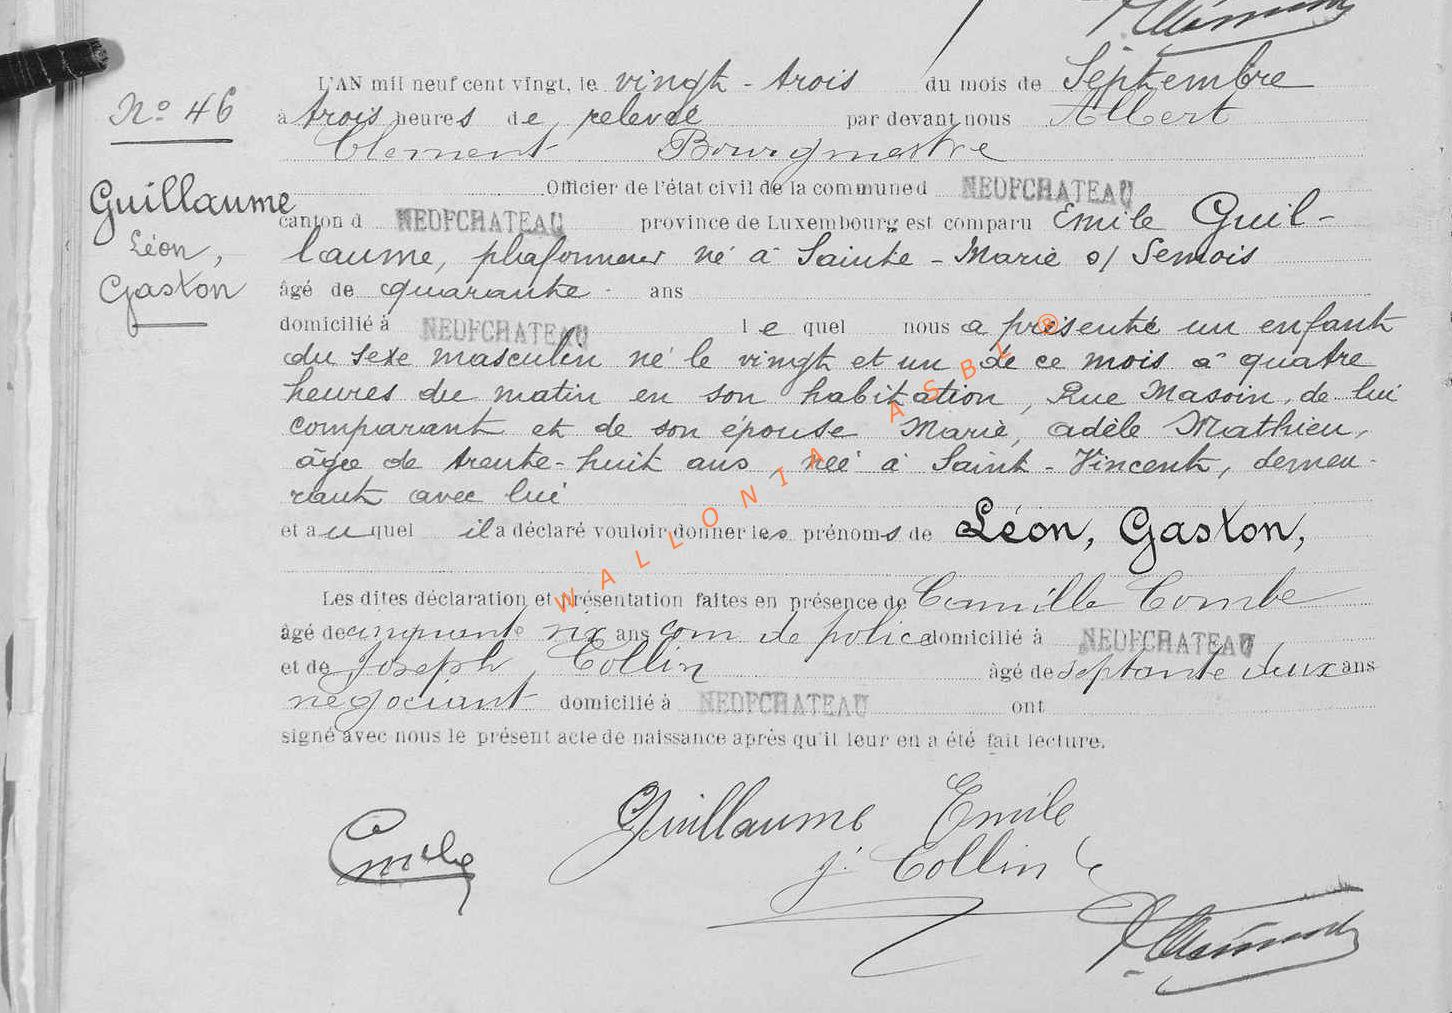 L'AN mil neuf cent vingt, le vingt-trois du mois de Septembre
No 46
à trois heures de relevée par devant nous Albert
Clément Bourgmestre
Officier de l'état civil de la commune d NEUFCHATEAU
Guillaume
Léon,
Gaston
canton d NEUFCHATEAU province de Luxembourg est comparu Emile Guil-
laume, plafonneur né à Sainte-Marie s/ Semois
âgé de quarante ans
domicilié à NEUFCHATEAU lequel nous a présenté un enfant
du sexe masculin né le vingt et un de ce mois à quatre
heures du matin en son habitation, Rue Masoin, de lui
comparant et de son épouse Marie, adèle Mathieu,
âgée de trente-huit ans, née à Saint-Vincent, demeu-
rant avec lui
et auquel il a déclaré vouloir donner les prénoms de Léon, Gaston,
Les dites déclaration et présentation faites en présence de Camille Combe
âgé de cinquante six ans com de police domicilié à NEUFCHATEAU
et de Joseph Collin âgé de septante deux ans
négociant domicilié à NEUFCHATEAU ont
signé avec nous le présent acte de naissance après qu'il leur en a été fait lecture.
Guillaume Emile
J. Collin
WALLONIA ASBL ®